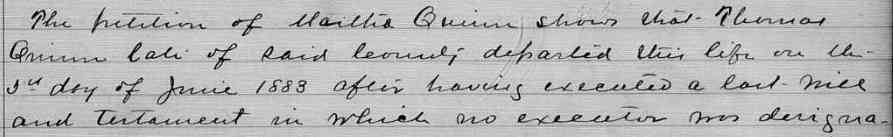 The petition of Martha Quinn shows that Thomas
Quinn late of said County departed this life on the
3rd day of June 1883 after having executed a last will
and testament in which no executor was designa-